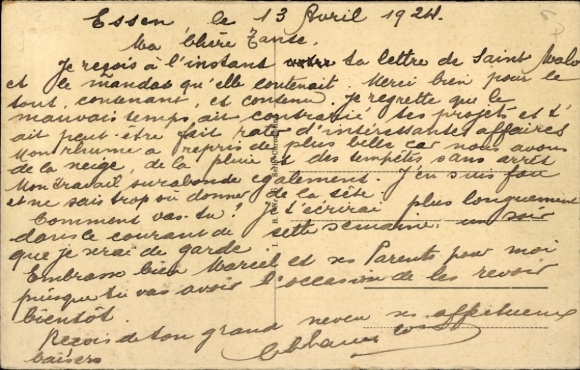 Essen, le 13 Avril 1924.
Ma Chère Tante.
Je reçois à l'instant ta lettre de Saint Malo
et le mandat qu'elle contenait. Merci bien pour le
tout, contenant, et contenu. Je regrette que le
mauvais temps, ait contrarié tes projets et t'
ait peut-être fait rater d'intéressantes affaires
Mon rhume a repris de plus belles car nous avons
de la neige, de la pluie et des tempêtes sans arrêt
Mon travail surabonde également. J'en suis fou
et ne sais trop où donner de la tête.
Comment vas-tu? Je t'écrirai plus longuement
dans le courant de cette semaine, un soir
que je serai de garde.
Embrasse bien Marcel et ses Parents pour moi
puisque tu vas avoir l'occasion de les revoir
bientôt.
Reçois de ton grand neveu ses affectueux
baisers